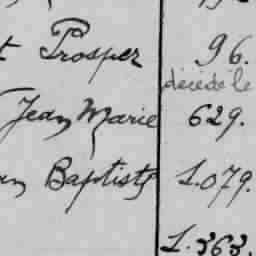 t Prosper 96.
décédé le
Jean Marie 629.
an Baptiste 1.079.
1.363.